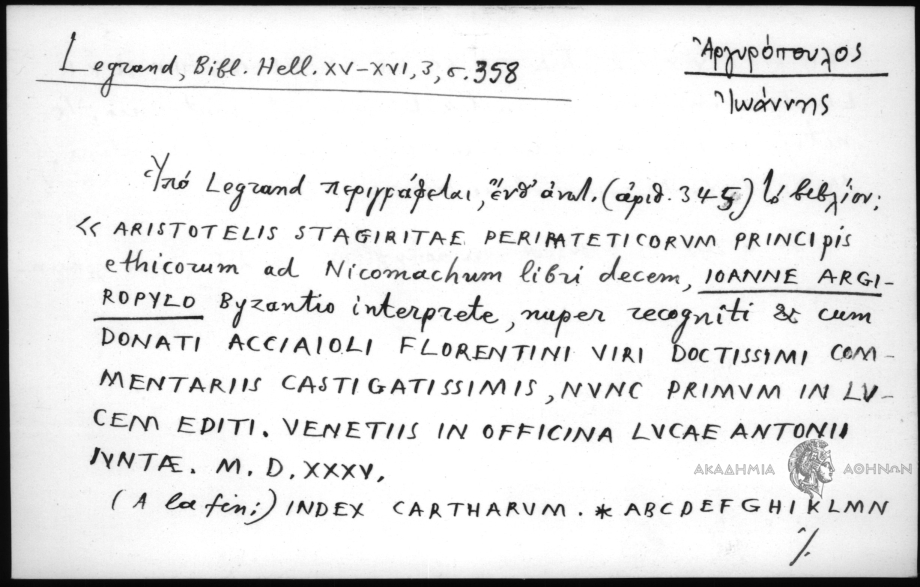 Legrand, Bibl. Hell. XV-XVI, 3, σ. 358
Ἀργυρόπουλος
Ἰωάννης
Ὑπό Legrand περιγράφεται, ἔνθ' ἀνωτ. (ἀριθ. 345) τό βιβλίον:
<< ARISTOTELIS STAGIRITAE PERIPATETICORVM PRINCIpis
ethicorum ad Nicomachum libri decem, IOANNE ARGI-
ROPYLO Byzantio interprete, nuper recogniti & cum
DONATI ACCIAIOLI FLORENTINI VIRI DOCTISSIMI COM-
MENTARIIS CASTIGATISSIMIS, NVNC PRIMVM IN LV-
CEM EDITI. VENETIIS IN OFFICINA LVCAE ANTONII
IVNTÆ. M. D. XXXV.
ΑΚΑΔΗΜΙΑ ΑΘΗΝΩΝ
(A la fin:) INDEX CARTHARVM. * ABCDEFGHIKLMN
./.